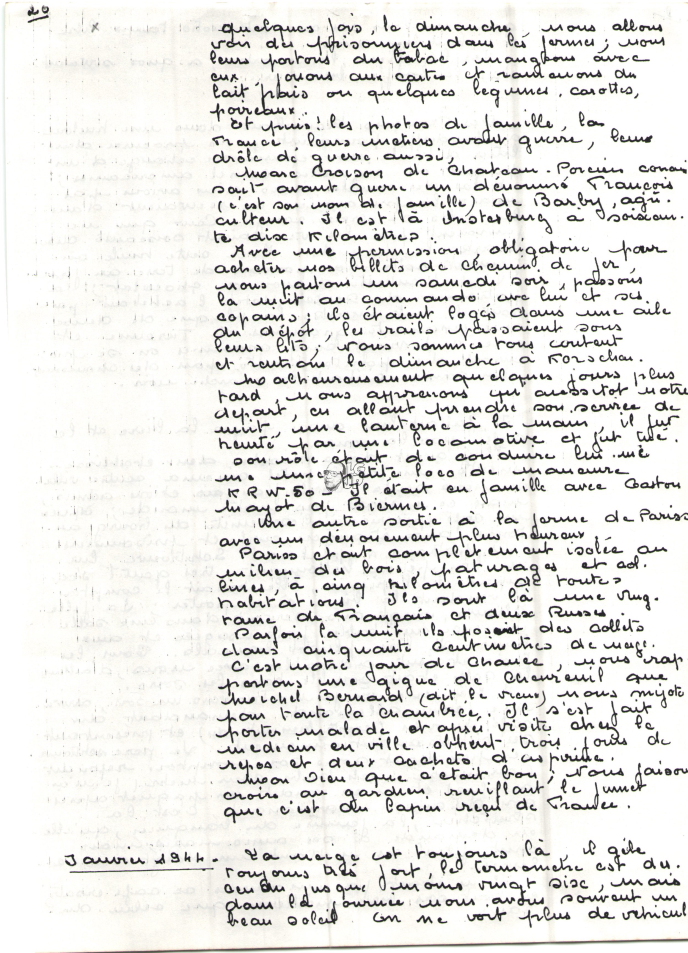 20
x
quelques fois, le dimanche, nous allons
voir des prisonniers dans les fermes; nous
leurs portons du tabac, mangeons avec
eux, jouons aux cartes et ramenons du
lait frais ou quelques legumes, carottes,
poireaux.
Et puis! les photos de famille, la
France, leurs métiers avant guerre, leur
drôle de guerre aussi,
Marc Croison de Chateau-Porcien connai
sait avant guerre un dénommé François
(c'est son nom de famille) de Barby, agri-
culteur. Il est à Insterburg à soixan-
te dix Kilomètres.
Avec une permission, obligatoire pour
acheter nos billets de chemin de fer,
nous partons un samedi soir, passons
la nuit au commando avec lui et ses
copains; ils étaient logés dans une aile
du dépôt, les rails passaient sous
leurs lits; nous sommes tous content
et rentrons le dimanche à Korschen.
Malheureusement quelques jours plus
tard, nous apprenons qu'aussitot notre
depart, en allant prendre son service de
nuit, une lanterne à la main, il fut
heurté par une locomotive et fut tué.
Son rôle était de conduire lui mê
me une petite loco de manœuvre
K.R.W.50 - Il était en famille avec Gaston
Mayot de Biermes.
Une autre sortie à la ferme de Pariss
avec un dénouement plus heureux,
Pariss etait complètement isolée au
milieu des bois, paturages et col-
lines, à cinq kilomètres de toutes
habitations. Ils sont là une ving-
taine de Français et deux Russes.
Parfois la nuit ils posent des collets
dans cinquante centimètres de neige.
C'est notre jour de chance, nous rap
portons une gigue de chevreuil que
Michel Bernard (dit le vieux) nous mijote
pour toute la chambrée. Il s'est fait
porter malade et après visite chez le
medecin en ville obtient trois jours de
repos et deux cachets d'aspirine.
Mon Dieu que c'était bon, nous faisons
croire au gardien reniflant le fumet
que c'est du lapin reçu de France.
Janvier 1944. La neige est toujours là il gèle
toujours très fort, le termomètre est des-
cendu jusque moins vingt six, mais
dans la journée nous avons souvent un
beau soleil. On ne voit plus de vehicul